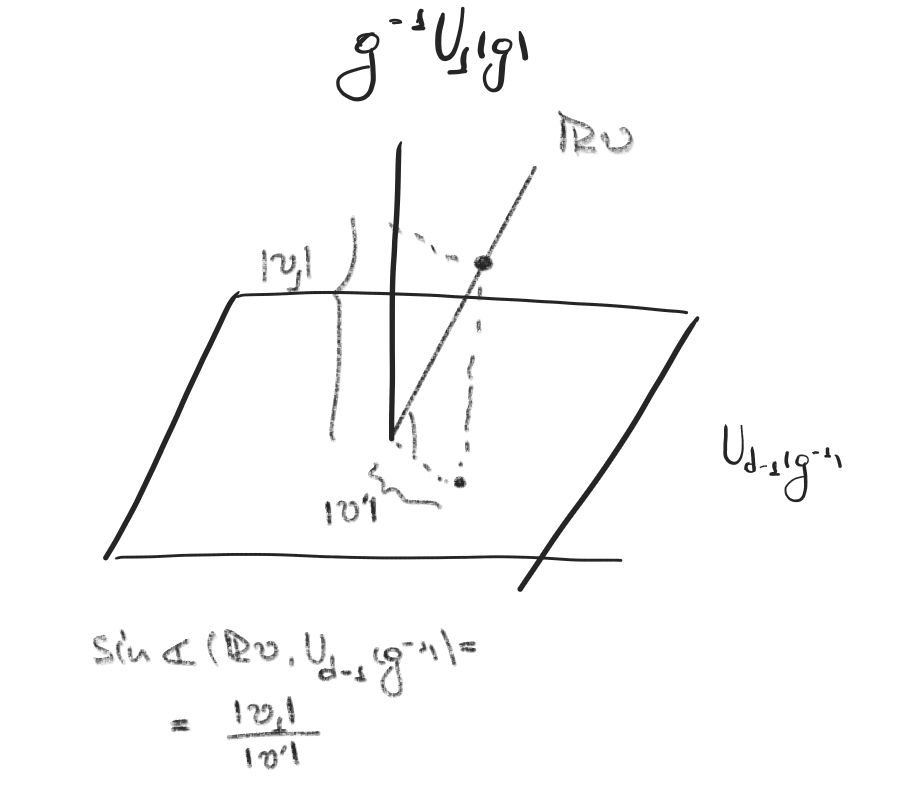 g⁻¹U₁(g)
ℝv
|v₁|
U_{d-1}(g⁻¹)
|v'|
sin ∢ (ℝv, U_{d-1}(g⁻¹)) =
= |v₁| / |v'|